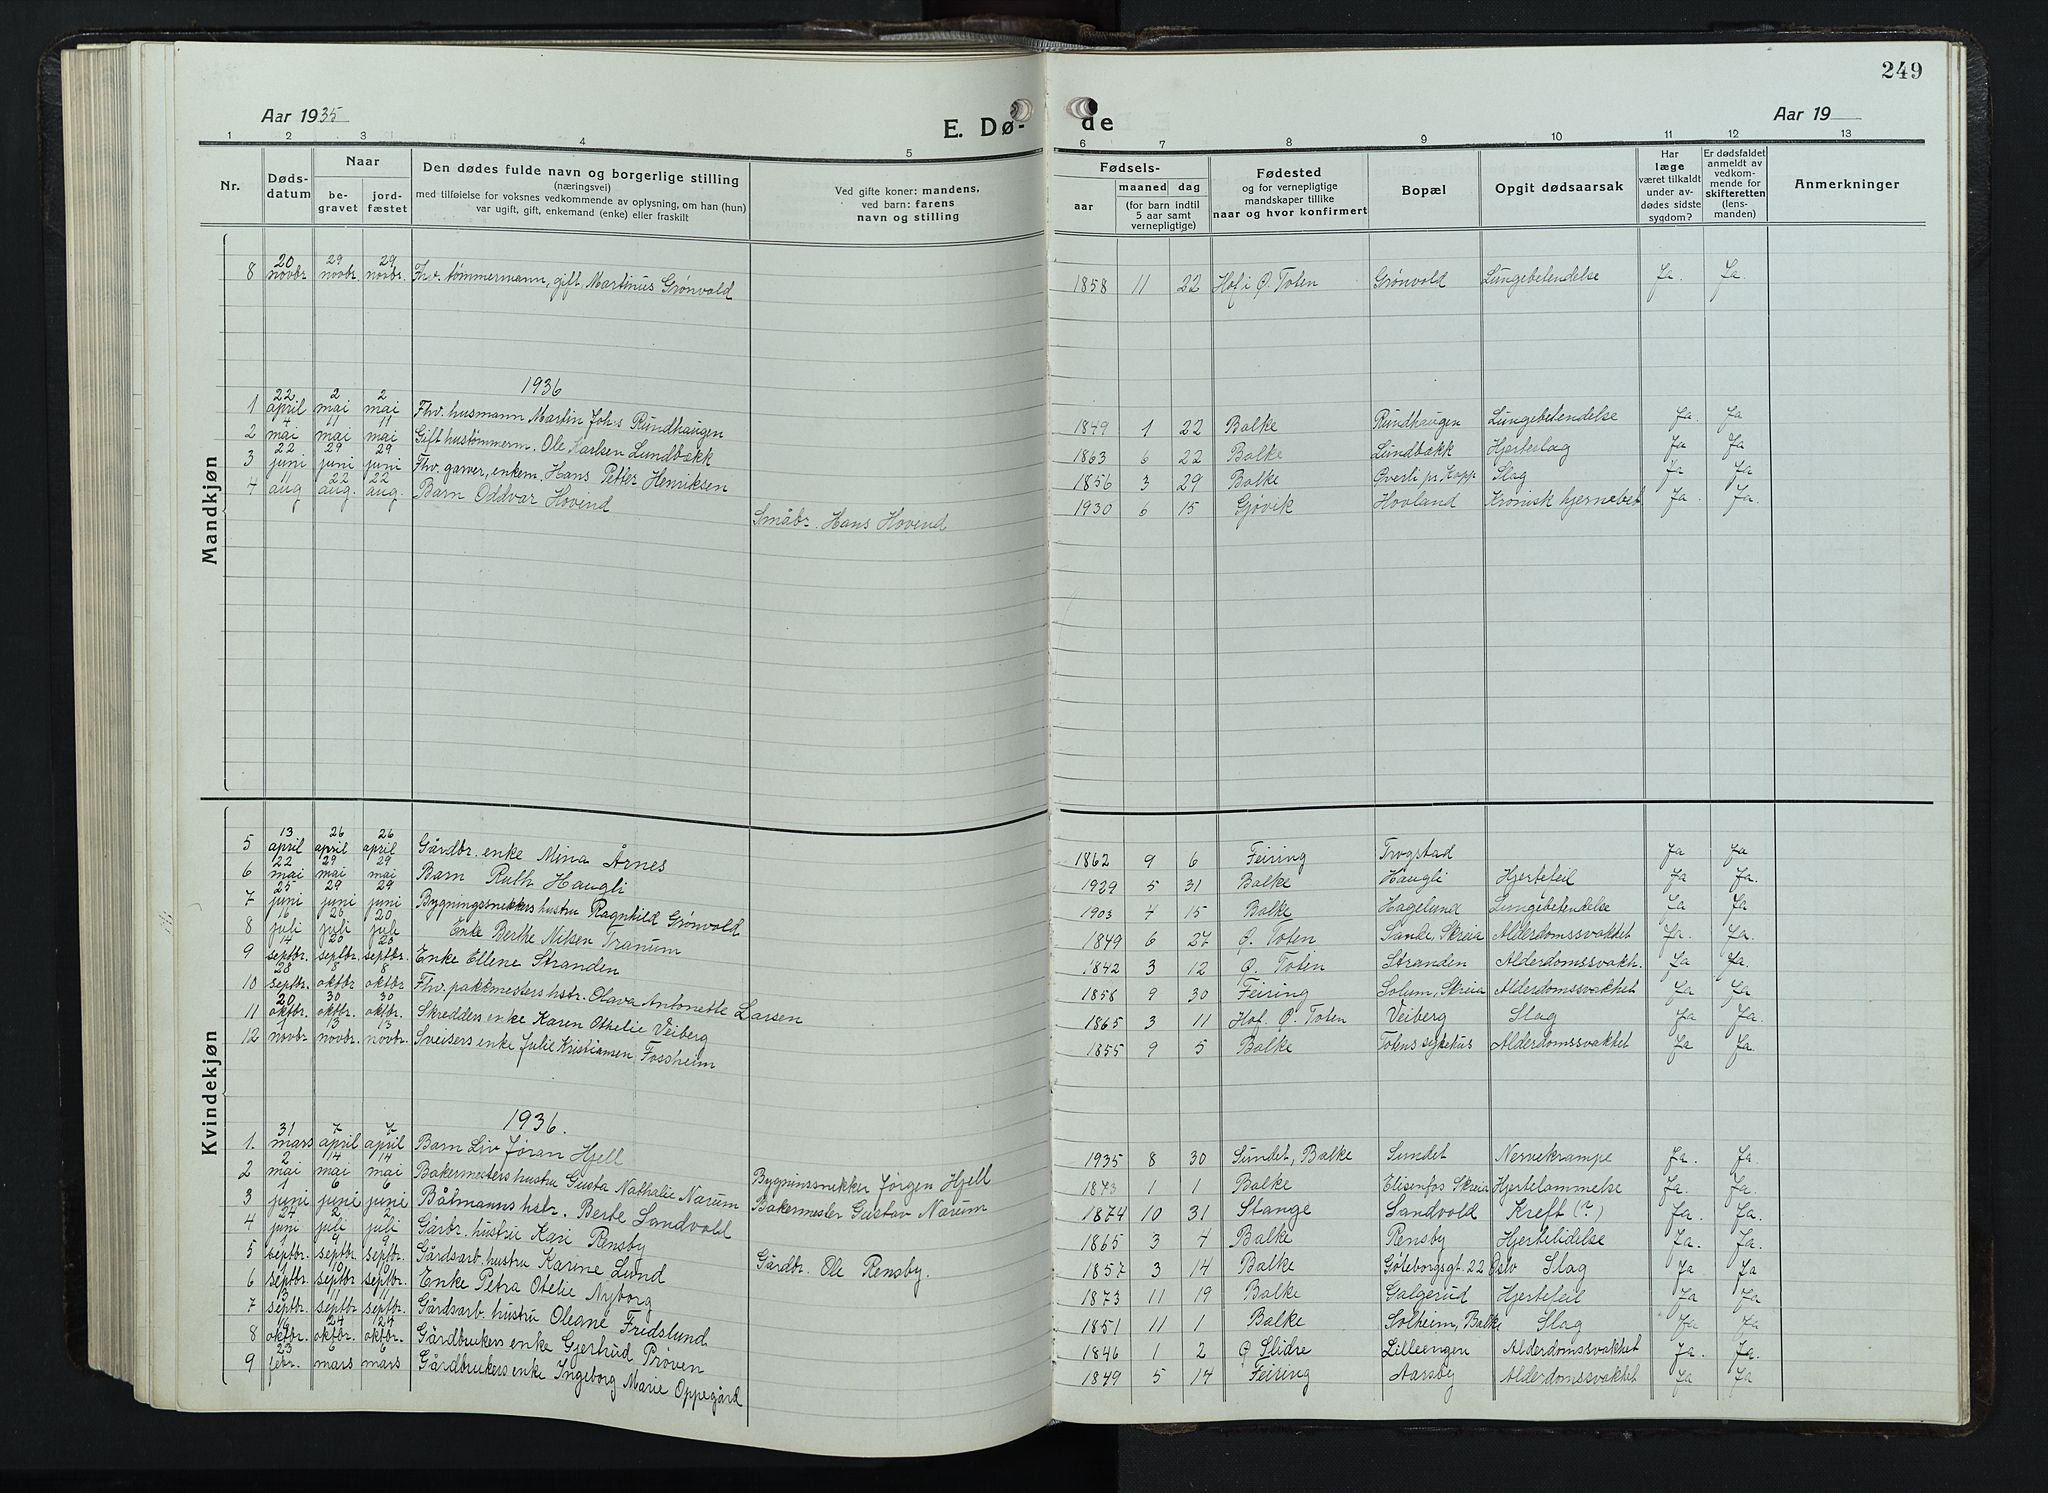 249
Aar 1935
E. Dø-
de
Aar 19
1 2 3 4 5 6 7 8 9 10 11 12 13
Nr.
Døds-
datum
Naar
be-
gravet
jord-
fæstet
Den dødes fulde navn og borgerlige stilling
(næringsvei)
med tilføielse for voksnes vedkommende av oplysning, om han (hun)
var ugift, gift, enkemand (enke) eller fraskilt
Ved gifte koner: mandens,
ved barn: farens
navn og stilling
Fødsels-
aar
maaned
dag
(for barn indtil
5 aar samt
vernepligtige)
Fødested
og for vernepligtige
mandskaper tillike
naar og hvor konfirmert
Bopæl
Opgit dødsaarsak
Har
læge
været tilkaldt
under av-
dødes sidste
sygdom?
Er dødsfaldet
anmeldt av
vedkom-
mende for
skifteretten
(lens-
manden)
Anmerkninger
Mandkjøn
8 20 novbr 29 novbr. 29 novbr. Fhv. tømmermann, gift, Martinus Grønvold 1858 11 22 Hof i Ø. Toten Grønvold Lungebetendelse Ja. Ja
1936
1 22 april 2 mai 2 mai Fhv. husmann Martin Johs Rundhaugen 1849 1 22 Balke Rundhaugen Lungebetendelse Ja. Ja
2 4 mai 11 mai 11 mai Gift hustømmerm. Ole Karlsen Lundbækk 1863 6 22 Balke Lundbækk Hjerteslag Ja Ja
3 22 juni 29 juni 29 juni Fhv. garver, enkem. Hans Petter Henriksen 1856 3 29 Balke Øverli pr Kopp Slag Ja Ja
4 11 aug 22 aug. 22 aug. Barn Oddvar Hovind Småbr. Hans Hovind 1930 6 15 Gjøvik Hovland Kronisk hjernebet Ja. Ja.
Kvindekjøn
5 13 april 26 april 26 april Gårdbr. enke Mina Årnes 1862 9 6 Feiring Trogstad Ja Ja
6 22 mai 29 mai 29 mai Barn Ruth Haugli 1929 5 31 Balke Haugli Hjertefeil Ja Ja.
7 25 juni 29 juni 29 juni Bygningssnekkers hustru Ragnhild Grønvold 1903 4 15 Balke Hagelund Lungebetendelse Ja Ja
8 16 juli 20 juli 20 juli Enke Berthe Nilsen Tranum 1849 6 27 Ø. Toten Sande, Skreia Alderdomssvakhet Ja. Ja.
9 14 septbr. 20 septbr. 20 septbr. Enke Ellene Stranden 1842 3 12 Ø. Toten Stranden Alderdomssvakh. Ja Ja.
10 28 septbr. 8 oktbr 8 oktbr Fhv. pakkmesters hstr. Olava Antonette Larsen 1858 9 30 Feiring Solum, Skreia Alderdomssvakhet Ja Ja
11 20 oktbr. 30 oktbr. 30 oktbr. Skredders enke Karen Othelie Veiberg 1865 3 11 Hof. Ø. Toten Veiberg Slag Ja Ja.
12 1 novbr 13 novbr. 13 novbr. Sveisers enke Julie Kristiansen Fossheim 1855 9 5 Balke Totens sykehus Alderdomssvakhet Ja Ja.
1936.
1. 31 mars 7 april 7 april Barn Liv Jøran Hjell Bygninssnekker Jørgen Hjell 1935 8 30 Sundet, Balke Sundet Nervekrampe Ja. Ja.
2 2 mai 14 mai 14 mai Bakermesters hustru Gusta Nathalie Narum Bakermester Gustav Narum 1873 1 1 Balke Elisenfos Skreia Hjertelammelse Ja. Ja.
3 1 juni 6 juni 6 juni Båtmanns hstr. Berte Sandvold 1874 10 31 Stange Sandvold Kreft (?) Ja. Ja.
4 24 juni 2 juli 2 juli Gårbr. hustru Kari Rensby Gårdbr. Ole Rensby. 1865 3 4 Balke Rensby Hjertelidelse Ja. Ja.
5 1 septbr. 9 septbr. 9 septbr. Gårdsarb. hustru Karine Lund 1857 3 14 Balke Göteborgsgt. 22 Oslo Slag Ja Ja
6 1 septbr. 10 septbr. 10 septbr. Enke Petra Otelie Nyborg 1873 11 19 Balke Galgerud Hjertefeil Ja Ja
7 3 septbr. 11 septbr. 11 septbr. Gårdsarb. hustru Olegne Fredslund 1851 11 1 Balke Solheim, Balke Slag Ja Ja
8 16 oktbr. 24 oktbr. 24 oktbr. Gårdbrukers enke Gjerhud Prøven 1846 1 2 Ø Slidre Lilleengen Alderdomssvakhet Ja. Ja.
9 23 febr. 6 mars 6 mars Gårdbrukers enke Ingeborg Marie Oppegård 1849 5 14 Feiring Aarsby Alderdomssvakhet Ja Ja